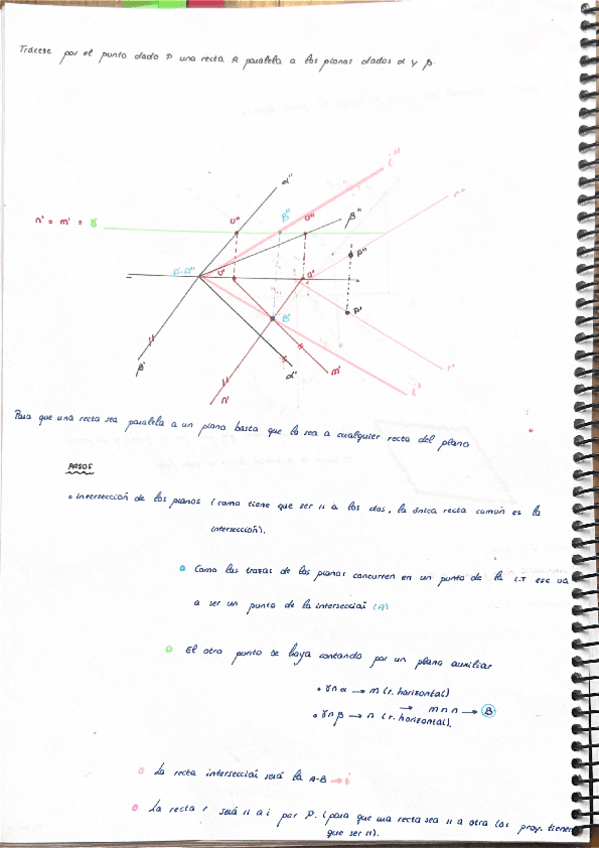 Trácese por el punto dado P una recta R paralela a los planos dados α y β.
i''
α''
r''
n'' = m'' = γ
v''
B''
u''
β''
P''
A'-A''
v'
u'
B'
P'
β'
α'
m'
n'
i'
r'
Para que una recta sea paralela a un plano basta que lo sea a cualquier recta del plano
PASOS
• intersección de los planos (como tiene que ser // a los dos, la única recta común es la
intersección).
Como las trazas de los planos concurren en un punto de la L.T ese va
a ser un punto de la intersección (A)
El otro punto se haya contando por un plano auxiliar
• γ∩α → m (r. horizontal)
m ∩ n → B
• γ∩β → n (r. horizontal).
La recta intersección será la A-B → i
La recta r será // a i por P. (para que una recta sea // a otra las proy. tienen
que ser //).